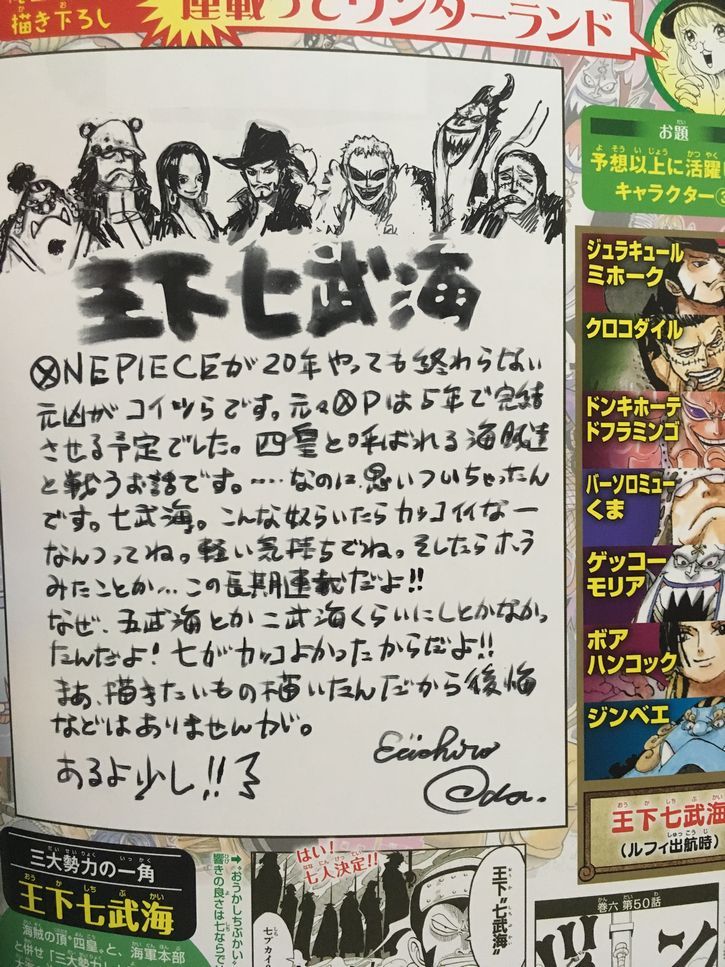 描き下ろし
連載づてワンダーランド
お題
予想以上に活躍し
キャラクター③
王下七武海
ONEPIECEが20年やっても終わらない
元凶がコイツらです。元々OPは5年で完結
させる予定でした。四皇と呼ばれる海賊達
と戦うお話です。……なのに、思いついちゃったん
です。七武海。こんな奴らいたらカッコイイなー
なんつってね。軽い気持ちでね。そしたらホラ
みたことか…この長期連載だよ!!
なぜ、五武海とか二武海くらいにしとかなかっ
たんだよ!七がカッコよかったからだよ!!
まぁ、描きたいもの描いたんだから後悔
などはありませんが。
あるよ少し!!
Eiichiro
Oda.
ジュラキュール
ミホーク
クロコダイル
ドンキホーテ
ドフラミンゴ
バーソロミュー
くま
ゲッコー
モリア
ボア
ハンコック
ジンベエ
王下七武海
(ルフィ出航時)
三大勢力の一角
王下七武海
海賊の頂"四皇"と、海軍本部
と併せ「三大勢力」
➡"おうかしちぶかい"
響きの良さは七ならで
はい!
七人決定!!
王下"七武海"
七ブカイ
巻六 第50話